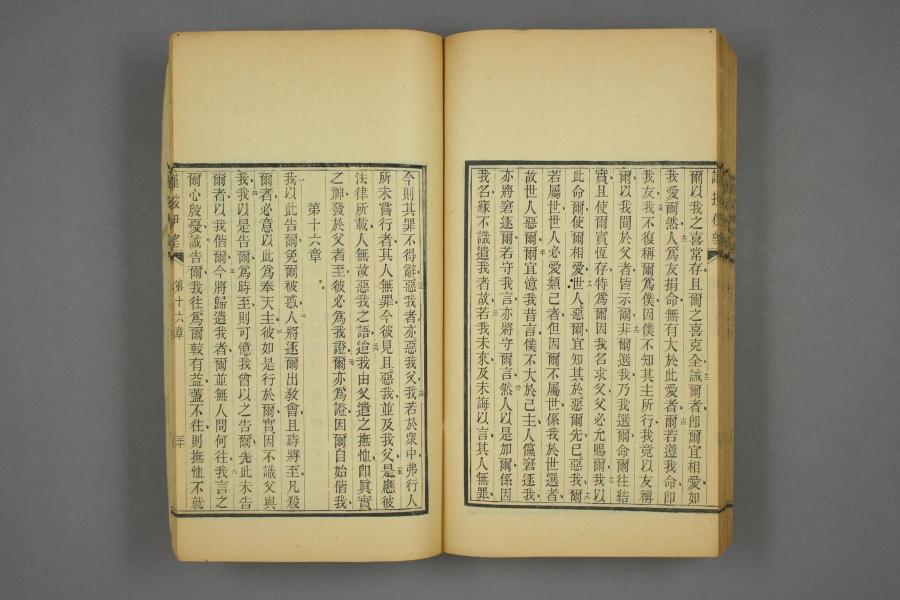 爾以我之喜常存且爾之喜克全誡爾者卽爾宜相愛如
我愛爾然人爲友捐命無有大於此愛者爾若遵我命卽
我友我不復稱爾爲僕因僕不知其主所行我竟以友稱
爾以我聞於父者皆示爾非爾選我乃我選爾命爾往結
實且使爾實恆存特爲爾因我名求父父必允賜爾我以
此命爾使爾相愛世人惡爾宜知其於惡爾先已惡我爾
若屬世世人必愛類己者但因爾不屬世係我於世選者
故世人惡爾爾宜憶我昔言僕不大於己主人儻窘逐我
亦將窘逐爾若守我言亦將守爾言然人以是加爾係因
我名緣不識遣我者故若我未來及未誨以言其人無罪
今則其罪不得辭惡我者亦惡我父我若於衆中弗行人
所未嘗行者其人無罪今彼見且惡我並及我父是應彼
法律所載人無故惡我之語迨我由父遣之撫恤卽眞實
之神發於父者至彼必爲我證爾亦爲證因爾自始偕我
第十六章
我以此告爾免爾被惑人將逐爾出敎會且時將至凡殺
爾者必意以此爲奉天主彼如是行於爾實因不識父與
我我以是告爾爲時至則可憶我曾以之告爾先此未告
爾者以我偕爾今將歸遣我者爾並無人問何往我言之
爾心殷憂誠告爾我往爲爾較有益蓋不往則撫恤不就
第十六章